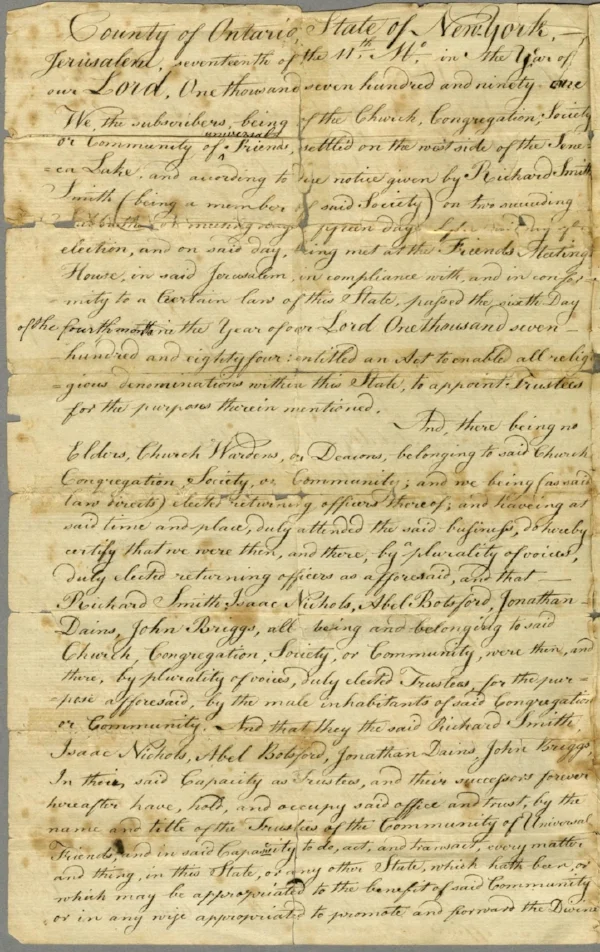 County of Ontario, State of New York, —
Jerusalem, seventeenth of the 11th Mo. in the Year of
our Lord, One thousand seven hundred and ninety-one
We, the subscribers, being of the Church, Congregation, Society
universal
or Community of ^ Friends, settled on the west side of the Sene-
=ca Lake, and according to due notice given by Richard Smith
Smith (being a member of said Society) on two succeeding
days
election, and on said day, being met at the Friends Meeting
House, in said Jerusalem, in compliance with, and in confor-
mity to a Certain law of this State, passed the sixth Day
of the fourth month in the Year of our Lord One thousand seven—
hundred and eighty four: entitled an Act to enable all relig-
=gious denominations within this State, to appoint Trustees
for the purposes therein mentioned.
And, there being no
Elders, Church Wardens, or Deacons, belonging to said Church
Congregation, Society, or Community; and we being (as said
law directs) elected returning officers thereof; and haveing at
said time and place, duly attended the said business, do hereby
certify that we were then, and there, by a plurality of voices,
duly elected returning officers as afforesaid, and that —
Richard Smith, Isaac Nichols, Abel Botsford, Jonathan
Dains, John Briggs, all being and belonging to said
Church, Congregation, Society, or Community, were then, and
there, by plurality of voices, duly elected Trustees, for the pur-
=pose afforesaid, by the male inhabitants of said Congregation
or Community. And that they the said Richard Smith,
Isaac Nichols, Abel Botsford, Jonathan Dains, John Briggs,
In their said Capacity as Trustees, and their successors forever
hereafter have, hold, and occupy said office and trust, by the
name and title of the Trustees of the Community of Universal
Friends, and in said Capacity to do, act, and transact, every matter
and thing, in this State, or any other State, which hath been, or
which may be appropriated to the benefit of said Community
or in any wise appropriated to promote and forward the Divine